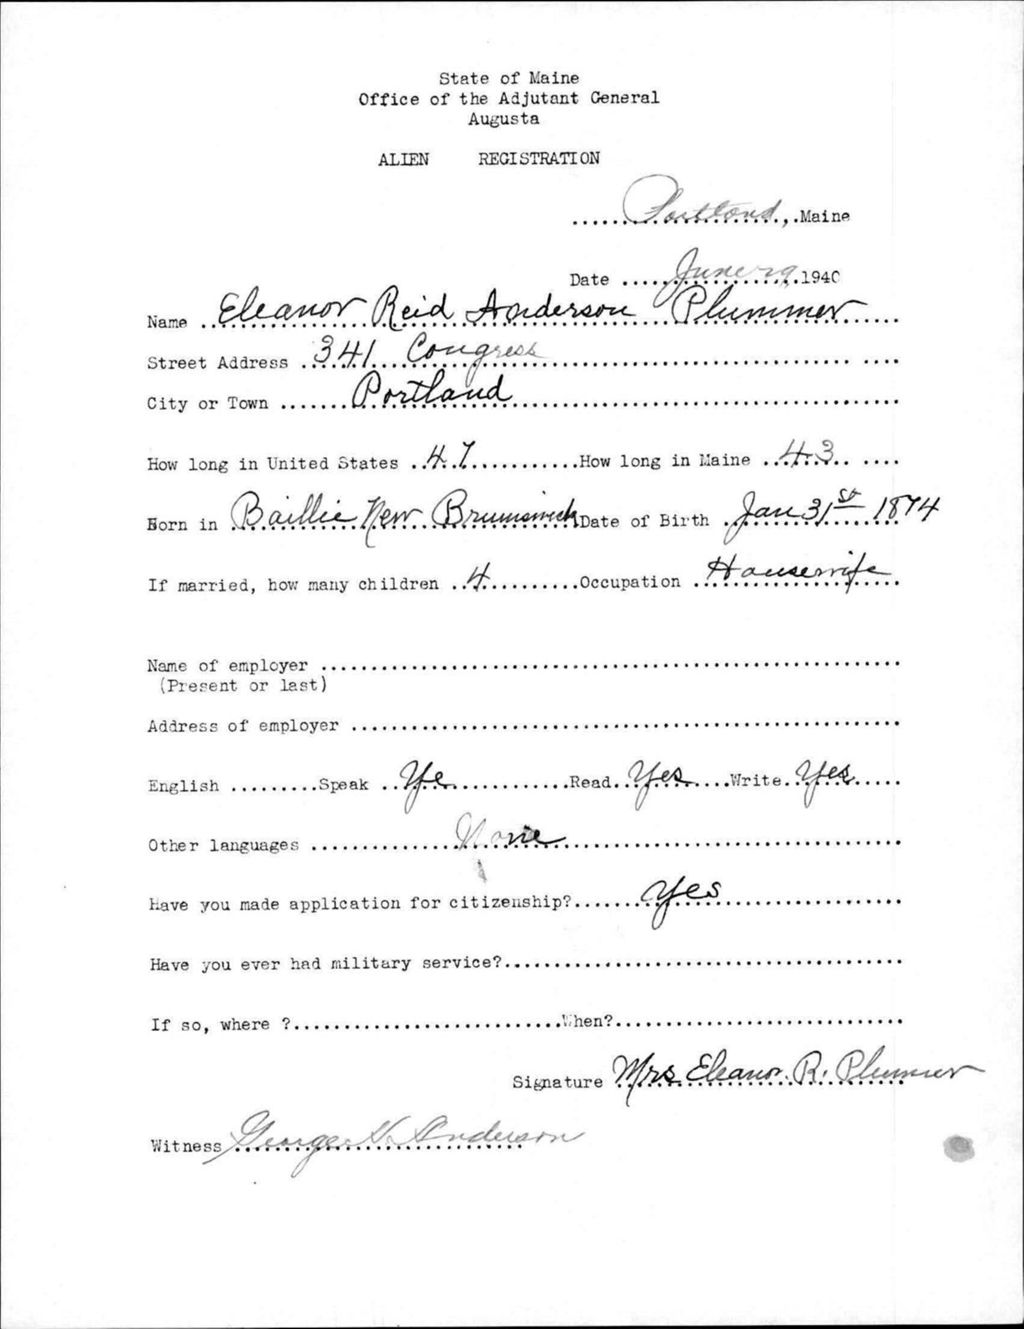 State of Maine
Office of the Adjutant General
Augusta
ALIEN REGISTRATION
......Portland,.Maine
Date ......June 29, 1940
Name ..Eleanor Reid Anderson Plummer......
Street Address ..341 Congress......
City or Town .......Portland......
How long in United States ..47...........How long in Maine ..43.......
Born in .Baillie New Brunswick Date of Birth .Jan 31st 1874
If married, how many children ..4..........Occupation ..Housewife..
Name of employer ......
(Present or last)
Address of employer ......
English .........Speak ..Ye.............Read..Yes....Write..Yes.....
Other languages ......None......
Have you made application for citizenship?.......Yes......
Have you ever had military service?......
If so, where ?......When?......
Signature Mrs Eleanor R. Plummer
Witness George Anderson